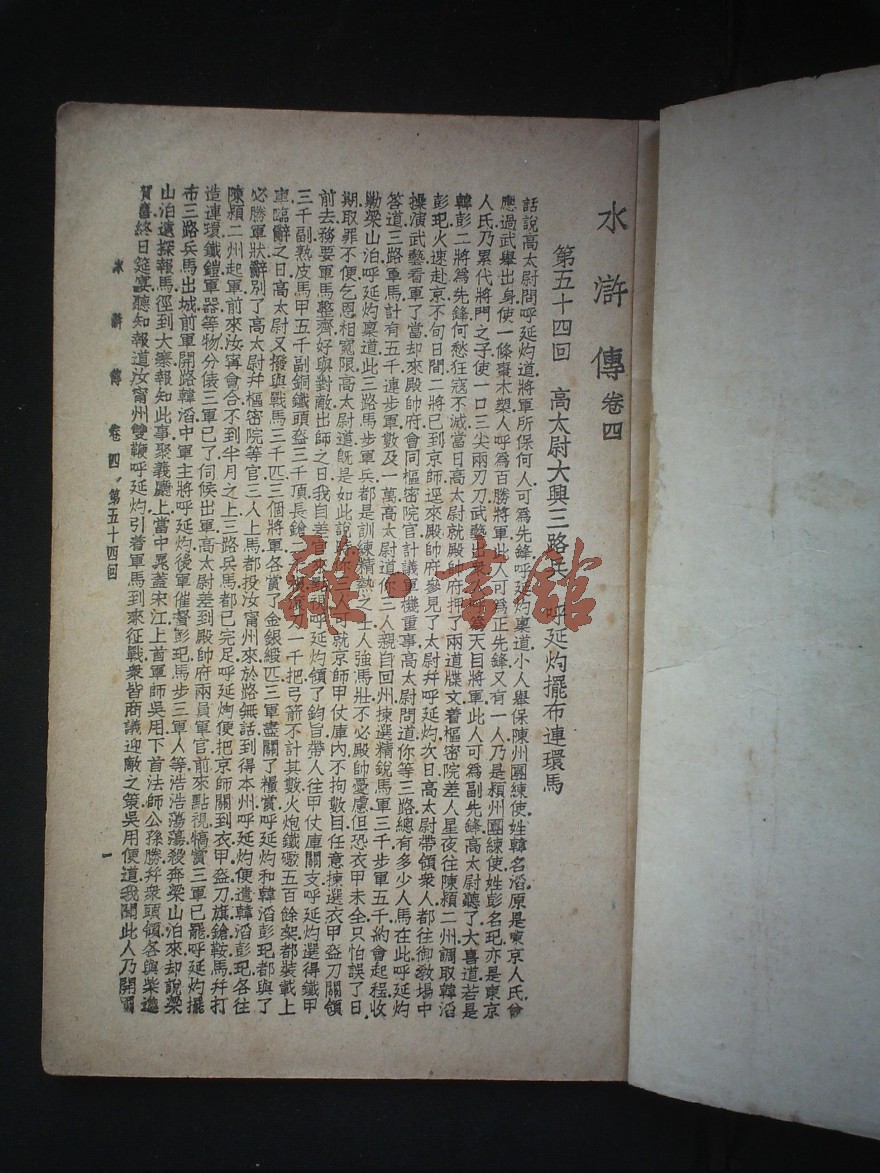 水滸傳 卷四
第五十四回 高太尉大興三路兵 呼延灼擺布連環馬
話說高太尉問呼延灼道將軍所保何人可爲先鋒呼延灼稟道小人舉保陳州團練使姓韓名滔原是東京人氏曾
應過武舉出身使一條棗木槊人呼爲百勝將軍此人可爲正先鋒又有一人乃是潁州團練使姓彭名玘亦是東京
人氏乃累代將門之子使一口三尖兩刃刀武藝出衆人呼爲天目將軍此人可爲副先鋒高太尉聽了大喜道若是
韓彭二將爲先鋒何愁狂寇不滅當日高太尉就殿帥府押了兩道牒文着樞密院差人星夜往陳潁二州調取韓滔
彭玘火速赴京不旬日間二將已到京師逕來殿帥府參見了太尉并呼延灼次日高太尉帶領衆人都往御敎場中
操演武藝看軍了當却來殿帥府會同樞密院官計議軍機重事高太尉問道你等三路總有多少人馬在此呼延灼
答道三路軍馬計有五千連步軍數及一萬高太尉道你三人親自回州揀選精銳馬軍三千步軍五千約會起程收
勦梁山泊呼延灼稟道此三路馬步軍兵都是訓練精熟之士人强馬壯不必殿帥憂慮但恐衣甲未全只怕誤了日
期取罪不便乞恩相寬限高太尉道旣是如此說時你三人可就京師甲仗庫內不拘數目任意揀選衣甲盔刀關領
前去務要軍馬整齊好與對敵出師之日我自差官來點視呼延灼領了鈞旨帶人往甲仗庫關支呼延灼選得鐵甲
三千副熟皮馬甲五千副銅鐵頭盔三千頂長鎗二千根滾刀一千把弓箭不計其數火炮鐵礮五百餘架都裝載上
車臨辭之日高太尉又撥與戰馬三千匹三個將軍各賞了金銀緞匹三軍盡關了糧賞呼延灼和韓滔彭玘都與了
必勝軍狀辭別了高太尉幷樞密院等官三人上馬都投汝甯州來於路無話到得本州呼延灼便遣韓滔彭玘各往
陳潁二州起軍前來汝甯會合不到半月之上三路兵馬都已完足呼延灼便把京師關到衣甲盔刀旗鎗鞍馬幷打
造連環鐵鎧軍器等物分俵三軍已了伺候出軍高太尉差到殿帥府兩員軍官前來點視犒賞三軍已罷呼延灼擺
布三路兵馬出城前軍開路韓滔中軍主將呼延灼後軍催督彭玘馬步三軍人等浩浩蕩蕩殺奔梁山泊來却說梁
山泊遠探報馬徑到大寨報知此事聚義廳上當中晁蓋宋江上首軍師吳用下首法師公孫勝幷衆頭領各與柴進
賀喜終日筵宴聽知報道汝甯州雙鞭呼延灼引着軍馬到來征戰衆皆商議迎敵之策吳用便道我聞此人乃開國
水滸傳 卷四 第五十四回 一
雜·書館